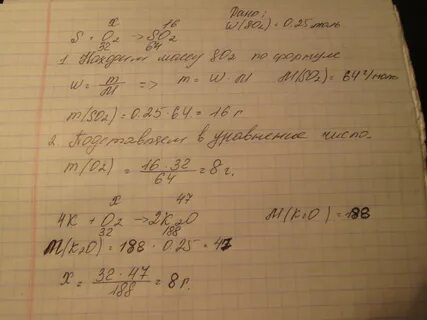 Дано:
x 16
S + O2 → SO2 W(SO2) = 0.25 моль
32 64
1. Находим массу SO2 по формуле
W = m/M => m = W · M M(SO2) = 64 г/моль
m(SO2) = 0.25 · 64 = 16 г
2. Подставляем в уравнение число.
m(O2) = 16 · 32 / 64 = 8 г.
x 47
4K + O2 → 2K2O M(K2O) = 188
32 188
M(K2O) = 188 · 0.25 = 47
X = 32 · 47 / 188 = 8 г.